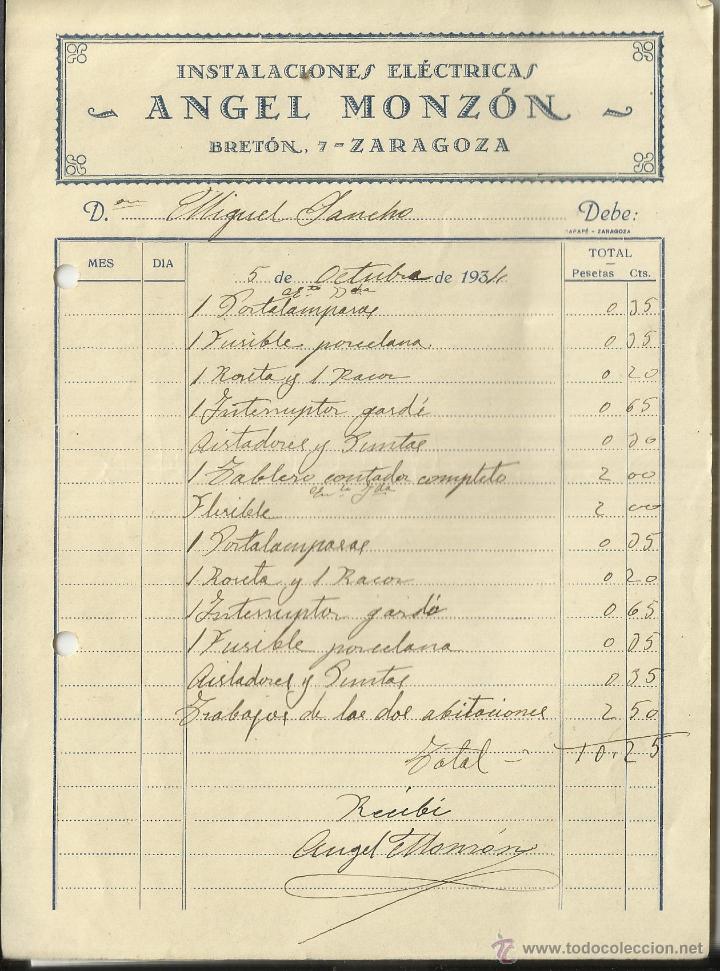 INSTALACIONES ELÉCTRICAS
ANGEL MONZÓN
BRETÓN, 7 - ZARAGOZA
D.on Miguel Sancho Debe:
MES DIA TOTAL
Pesetas Cts.
5 de Octubre de 1934
1 Portalamparas 0 35
1 Fusible porcelana 0 35
1 Roseta y 1 Racor 0 20
1 Interruptor gardé 0 65
Aisladores y Puntas 0 30
1 Tablero contador completo 2 00
Flexible 2 00
1 Portalamparas 0 35
1 Roseta y 1 Racor 0 20
1 Interruptor gardé 0 65
1 Fusible porcelana 0 35
Aisladores y Puntas 0 35
Trabajos de las dos abitaciones 2 50
Total 10.25
Recibi
Angel Monzón
todocoleccion
www.todocoleccion.net